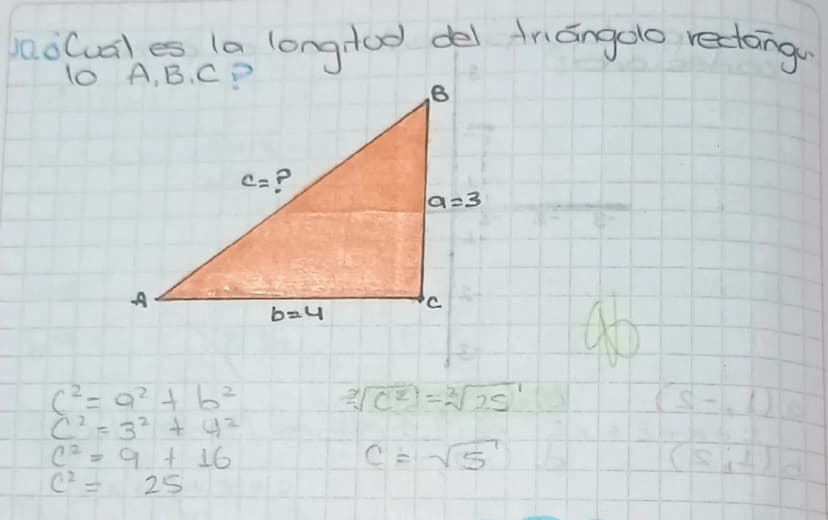 10. ¿Cuál es la longitud del triángulo rectángu-
lo A,B,C?
B
c=?
a=3
A
C
b=4
C² = a² + b²
C² = 3² + 4²
C² = 9 + 16
C² = 25
²√C² = ²√25
C = √5